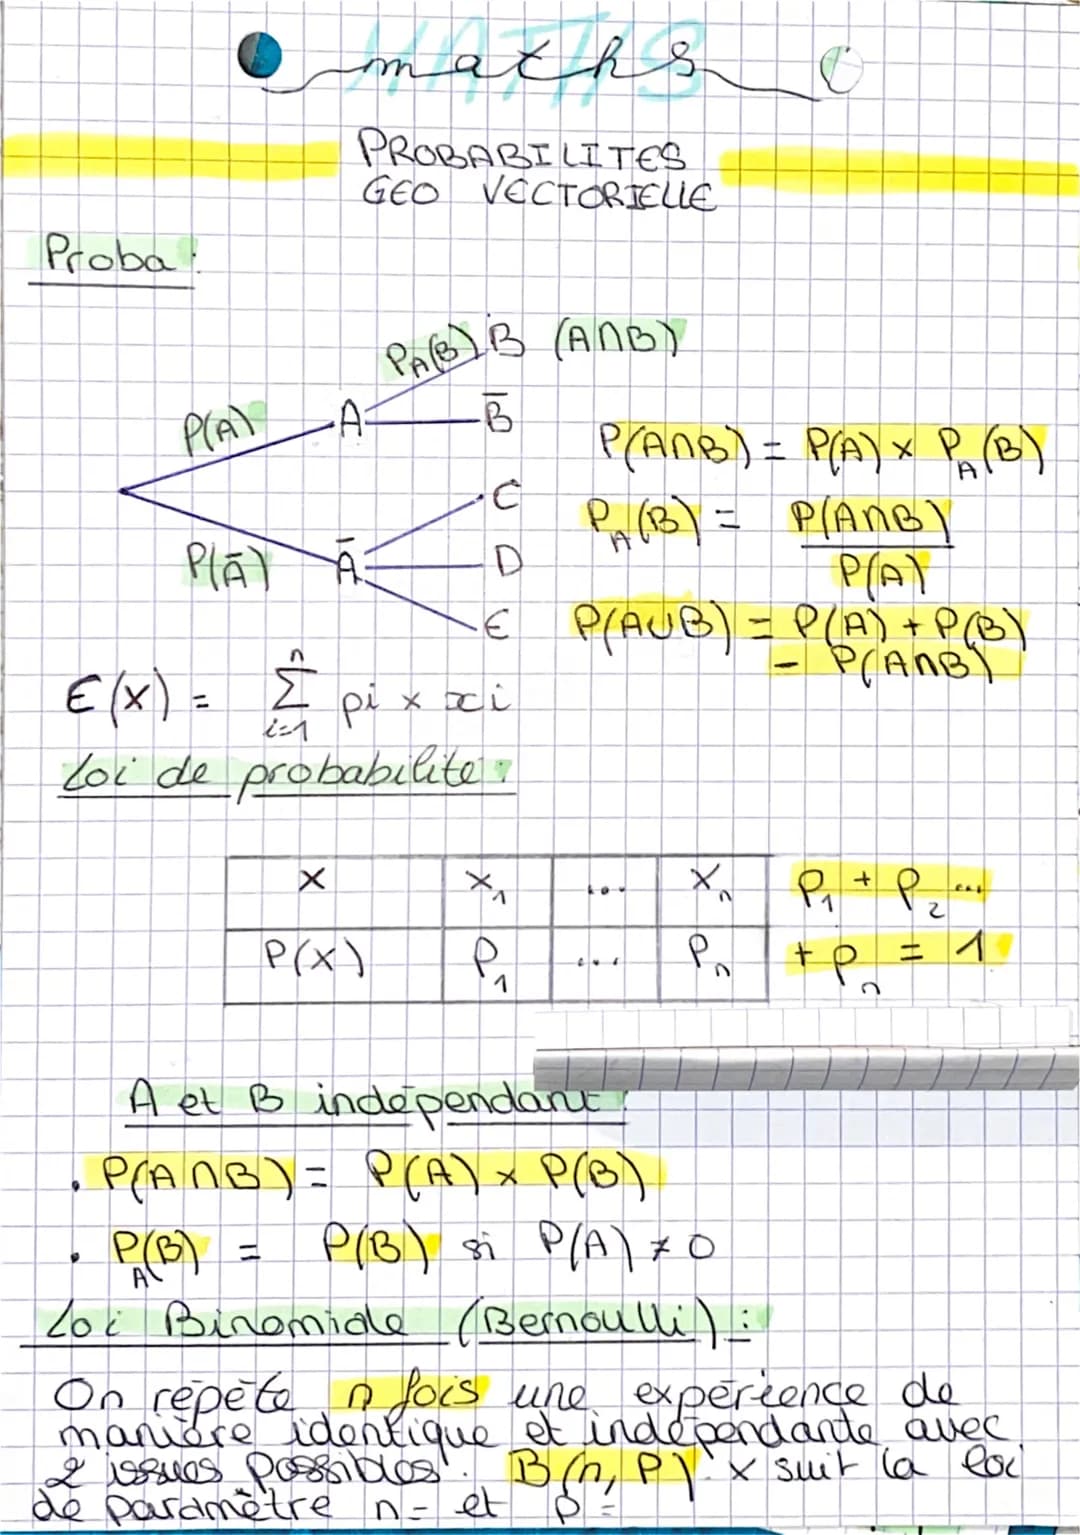 MATHS
maths
PROBABILITES
GEO VECTORIELLE
Proba :
P_A(B) B (A∩B)
P(A) A B̅
P(A∩B) = P(A) × P_A(B)
C
P_A(B) = P(A∩B) / P(A)
P(A̅) A̅ D
E
P(A∪B) = P(A) + P(B)
- P(A∩B)
E(x) = n Σ i=1 pi × xi
Loi de probabilité :
X x₁ ... Xₙ P₁ + P₂ ...
P(x) P₁ ... Pₙ + Pₙ = 1
A et B indépendant :
• P(A∩B) = P(A) × P(B)
• P_A(B) = P(B) si P(A) ≠ 0
Loi Binomiale (Bernoulli) :
On répète n fois une expérience de
manière identique et indépendante avec
2 issues possibles. B(n, P) X suit la loi
de paramètre n = et p =